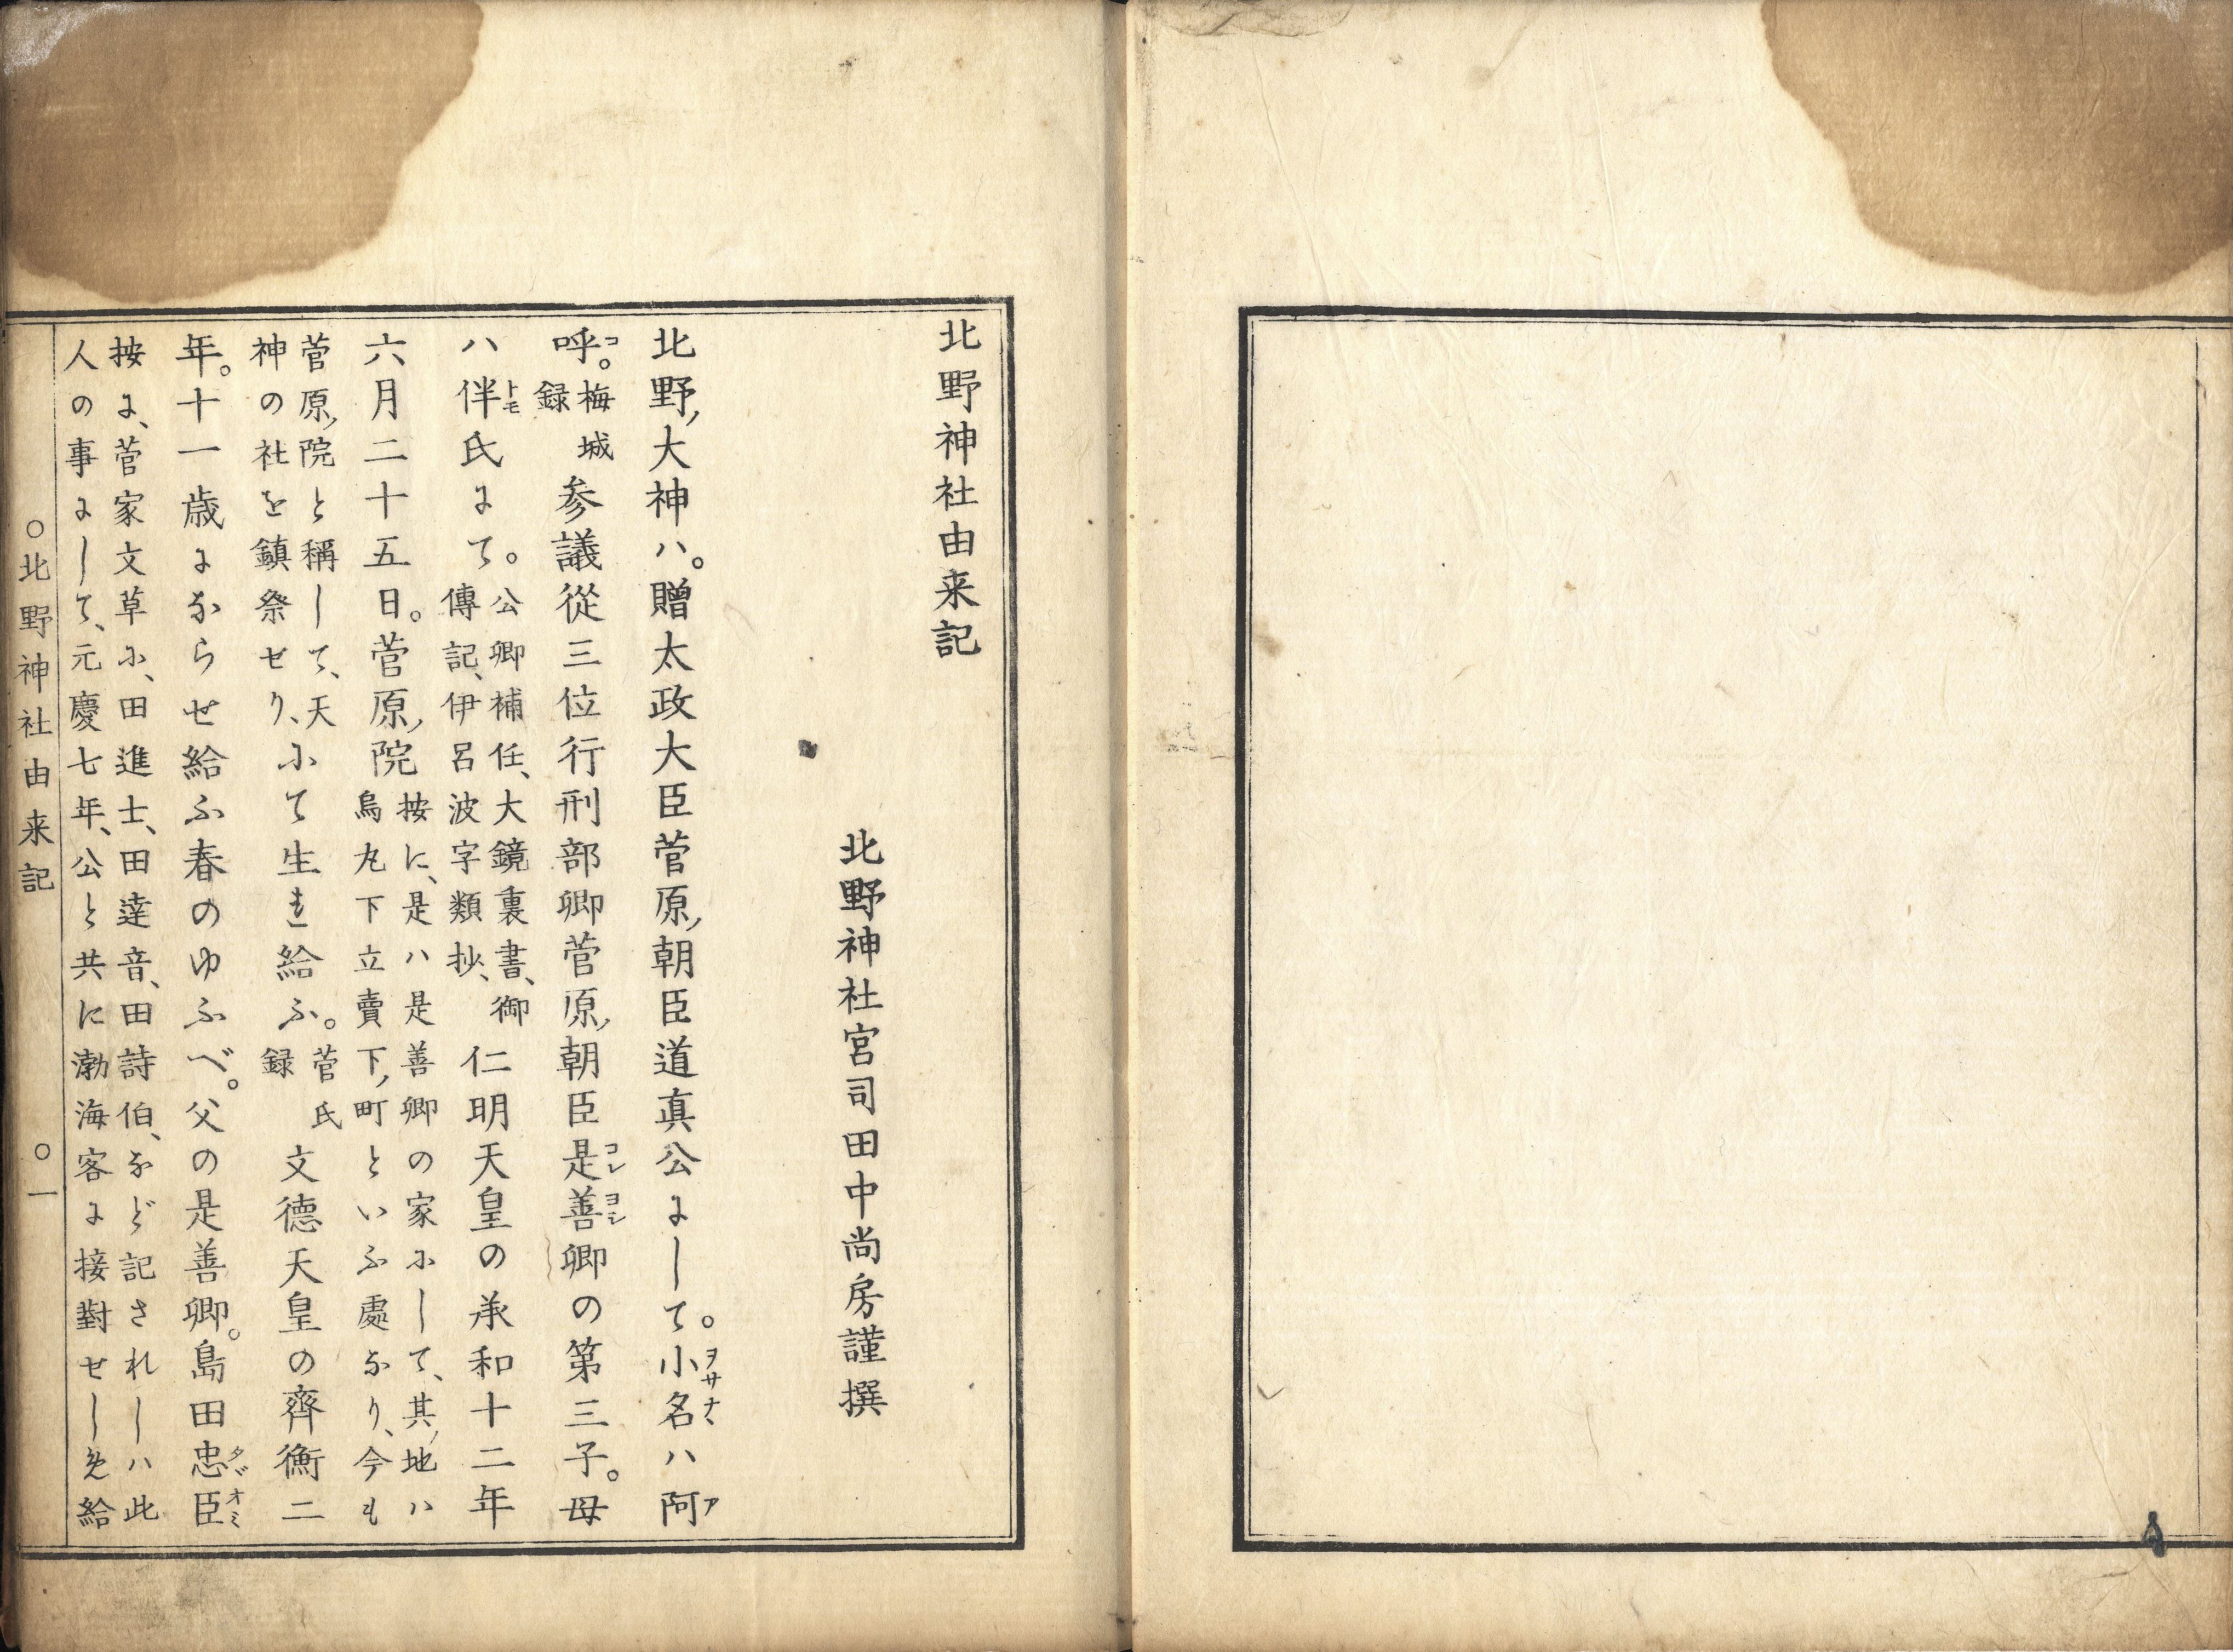 北野神社由来記
北野神社宮司田中尚房謹撰
北野ノ大神ハ。贈太政大臣菅原ノ朝臣道真公にして。小名ハ阿
ヲサナナ
ア
呼。
コ
梅城
録
参議從三位行刑部卿菅原ノ朝臣是善卿の第三子。母
コレヨシ
ハ伴氏にて。
トモ
公卿補任、大鏡裏書、御
傳記、伊呂波字類抄、
仁明天皇の承和十二年
六月二十五日。菅原ノ院
按に、是ハ是善卿の家にして、其ノ地ハ
烏丸下立賣下ノ町といふ處なり、今も
菅原ノ院と稱して、天
神の社を鎮祭せり、
にて生まれ給ふ。
菅氏
録
文德天皇の齊衡二
年。十一歳にならせ給ふ春のゆふべ。父の是善卿。島田忠臣
タダオミ
按に、菅家文草に、田進士、田達音、田詩伯、など記されしハ此
人の事にして、元慶七年、公と共に渤海客に接對せしめ給
○北野神社由来記
○一